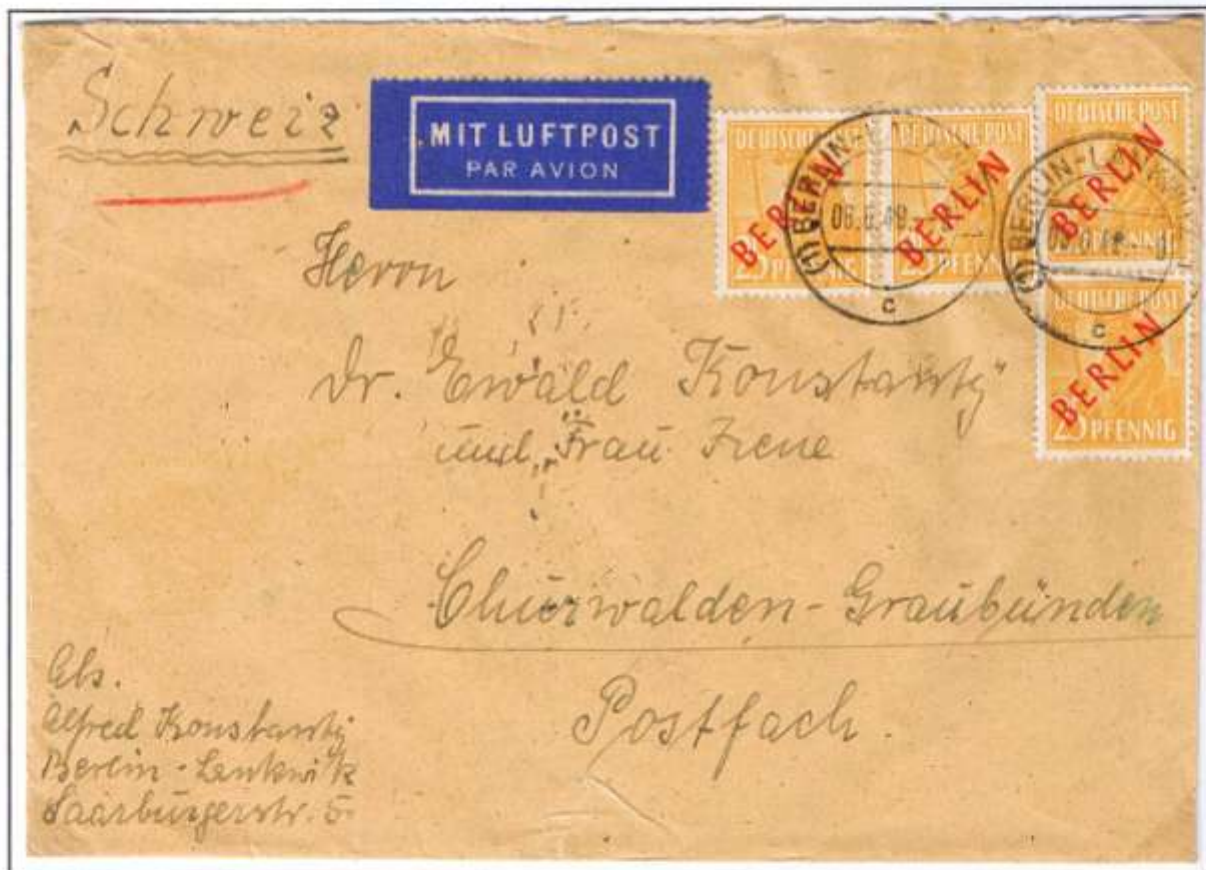 Schweiz
MIT LUFTPOST
PAR AVION
DEUTSCHE POST
BERLIN
25 PFENNIG
DEUTSCHE POST
BERLIN
25 PFENNIG
DEUTSCHE POST
BERLIN
PFENNIG
DEUTSCHE POST
BERLIN
25 PFENNIG
(1) BERLIN-L
c
(1) BERLIN-L
c
Herrn
Dr. Ewald Konstanty
und Frau Irene
Churwalden-Graubünden
Postfach.
Abs.
Alfred Konstanty
Berlin-Lankwitz
Saarburgerstr. 5